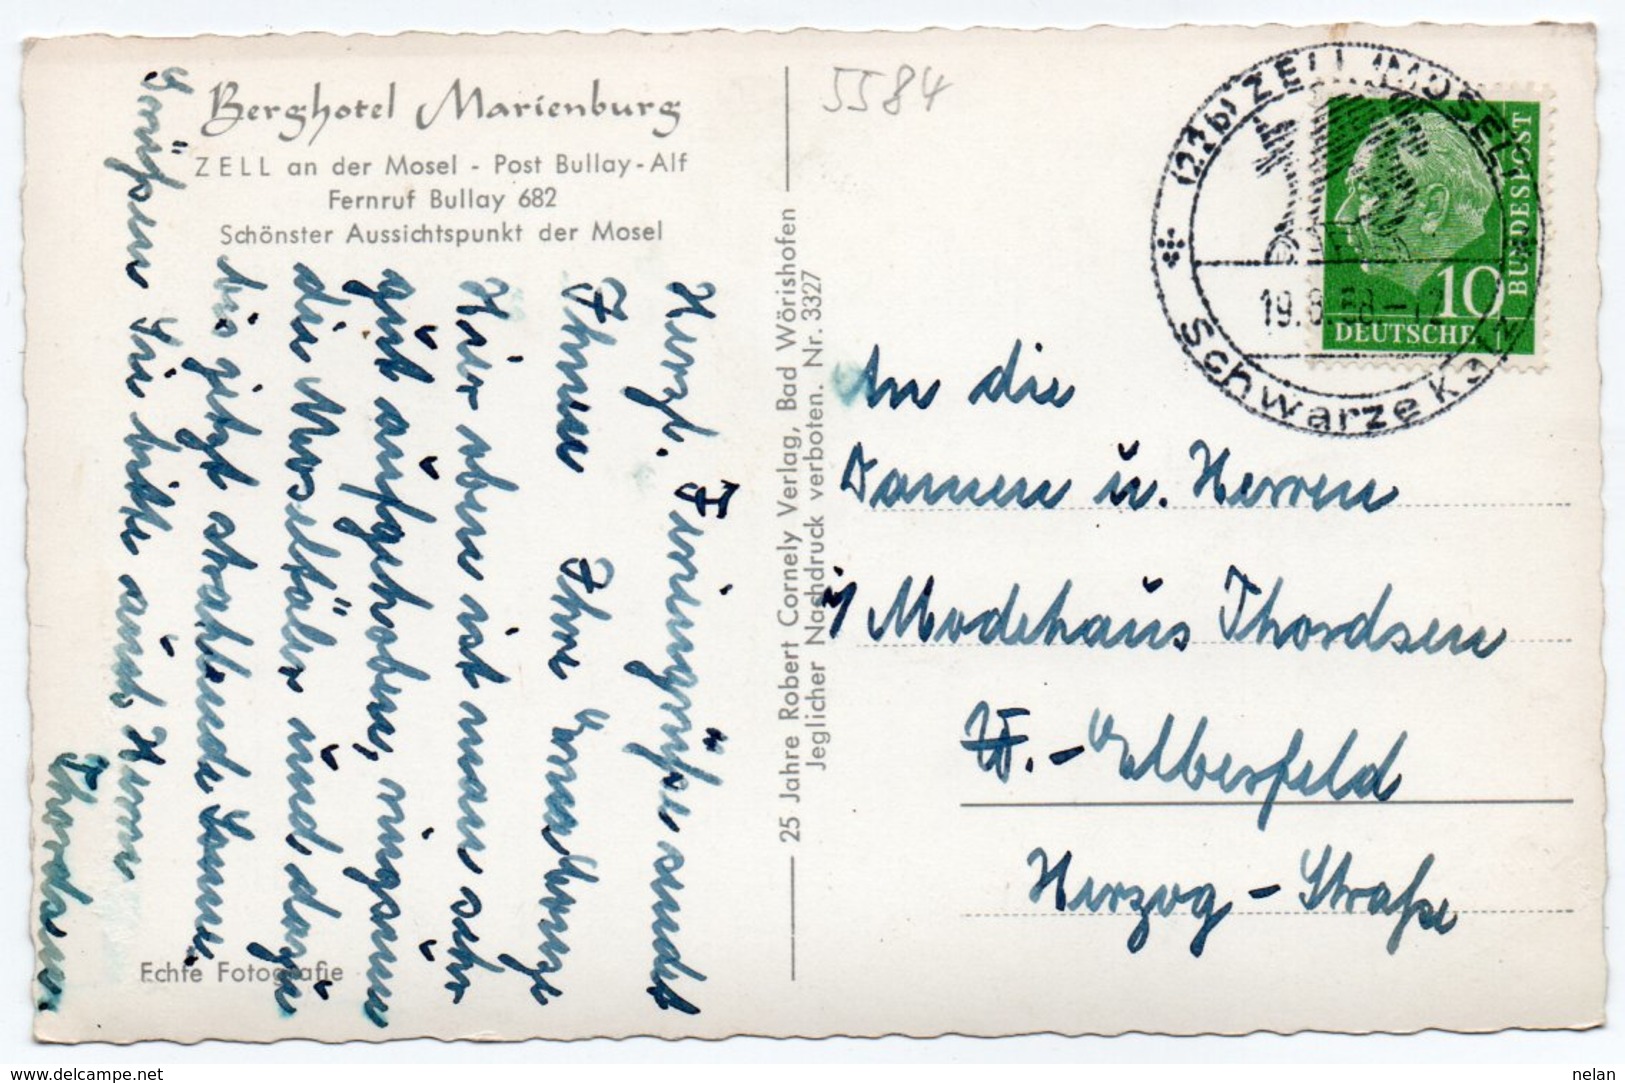 Berghotel Marienburg
ZELL an der Mosel - Post Bullay-Alf
Fernruf Bullay 682
Schönster Aussichtspunkt der Mosel
Herzl. Feriengrüße sendet
Ihnen Ihre
Hier oben ist man sehr
gut aufgehoben, ringsum
die Moseltäler und dazu
bis jetzt strahlende Sonne.
Grüßen Sie bitte auch Herrn
Thordsen.
Echte Fotografie
25 Jahre Robert Cornely Verlag, Bad Wörishofen
Jeglicher Nachdruck verboten. Nr. 3327
5584
(22b) ZELL (MOSEL)
19.8.58-12
Schwarze Katz
DEUTSCHE
BUNDESPOST
10
An die
Damen u. Herren
i/ Modehaus Thordsen
W.-Elberfeld
Herzog-Straße
www.delcampe.net
nelan